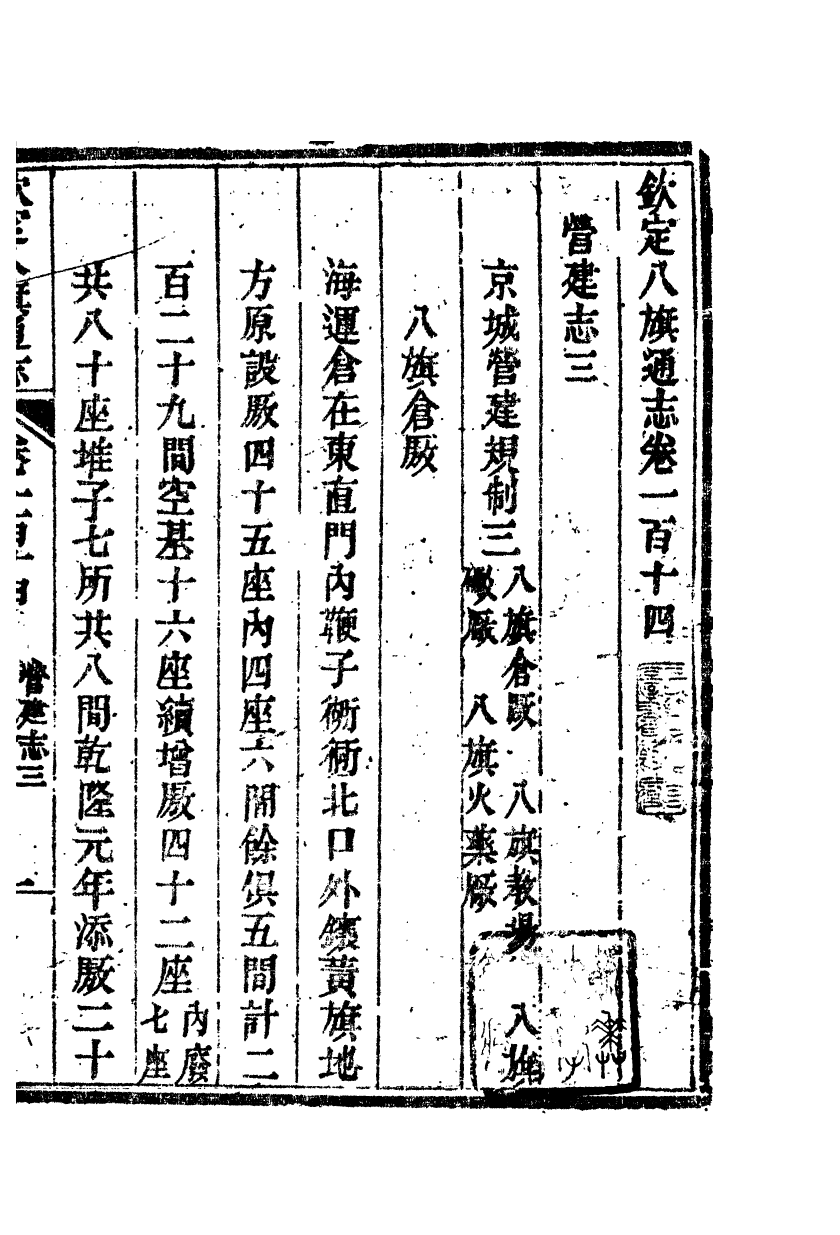 欽定八旗通志卷一百十四
營建志三
京城營建規制三 八旗倉厫 八旗教場 八旗
礮厰 八旗火藥厰
八旗倉厫
海運倉在東直門內鞭子衚衕北口外鑲黃旗地
方原設厫四十五座內四座六間餘俱五間計二
百二十九間空基十六座續增厫四十二座 內廢
七座
共八十座堆子七所共八間乾隆元年添厫二十
營建志三